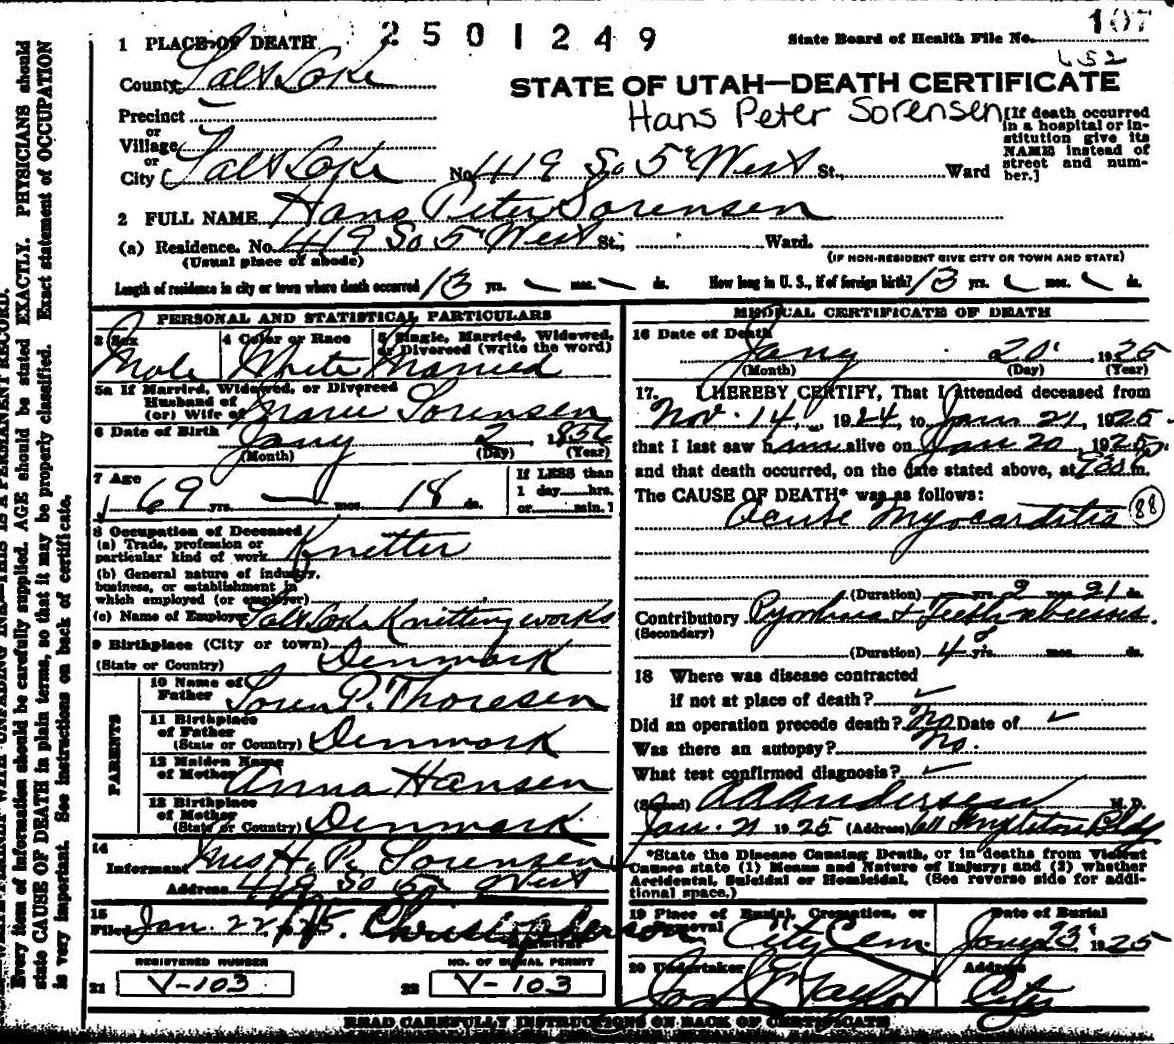 2501249
1 PLACE OF DEATH
State Board of Health File No. 107
652
County Salt Lake
STATE OF UTAH—DEATH CERTIFICATE
Precinct
Hans Peter Sorensen
[If death occurred in a hospital or institution give its NAME instead of street and number.]
or
Village
or
City Salt Lake No. 419 So 5 West St., Ward
2 FULL NAME Hans Peter Sorensen
(a) Residence. No. 419 So 5 West St., Ward.
(Usual place of abode) (IF NON-RESIDENT GIVE CITY OR TOWN AND STATE)
Length of residence in city or town where death occurred 13 yrs. mos. ds. How long in U. S., if of foreign birth? 13 yrs. mos. ds.
PERSONAL AND STATISTICAL PARTICULARS
3 Sex 4 Color or Race 5 Single, Married, Widowed, or Divorced (write the word)
Male White Married
5a If Married, Widowed, or Divorced
Husband of
(or) Wife of Sorensen
6 Date of Birth Jany 2, 185
(Month) (Day) (Year)
7 Age If LESS than
69 yrs. mos. 18 ds. 1 day hrs.
or min.
8 Occupation of Deceased
(a) Trade, profession or
particular kind of work Knitter
(b) General nature of industry,
business, or establishment in
which employed (or employer)
(c) Name of Employer Salt Lake Knitting works
9 Birthplace (City or town)
(State or Country) Denmark
PARENTS
10 Name of
Father Soren P. Thoresen
11 Birthplace
of Father
(State or Country) Denmark
12 Maiden Name
of Mother Anna Hansen
13 Birthplace
of Mother
(State or Country) Denmark
14
Informant Mrs H. P. Sorensen
Address 419 So 5 West
15
Filed Jan. 22, 1925.
Registrar
REGISTERED NUMBER NO. OF BURIAL PERMIT
21 V-103 22 V-103
MEDICAL CERTIFICATE OF DEATH
16 Date of Death
Jany 20, 1925
(Month) (Day) (Year)
17. I HEREBY CERTIFY, That I attended deceased from
Nov. 14, 1924, to Jan 21, 1925
that I last saw him alive on Jan 20, 1925
and that death occurred, on the date stated above, at m.
The CAUSE OF DEATH* was as follows:
Acute Myocarditis 88
(Duration) yrs. 2 mos. 21 ds.
Contributory Pyorrhea + Teeth abscesses.
(Secondary)
(Duration) 4 yrs. mos. ds.
18 Where was disease contracted
if not at place of death?
Did an operation precede death? No Date of
Was there an autopsy? No.
What test confirmed diagnosis?
(Signed) Andersen M. D.
Jan. 21 1925 (Address) Bldg
*State the Disease Causing Death, or in deaths from Violent
Causes state (1) Means and Nature of Injury; and (2) whether
Accidental, Suicidal or Homicidal. (See reverse side for additional space.)
19 Place of Burial, Cremation, or Removal City Cem. Date of Burial Jany 23 1925
20 Undertaker Taylor Address City
READ CAREFULLY INSTRUCTIONS ON BACK OF CERTIFICATE
THIS IS A PERMANENT RECORD.
Every item of information should be carefully supplied. AGE should be stated EXACTLY. PHYSICIANS should
state CAUSE OF DEATH in plain terms, so that it may be properly classified. Exact statement of OCCUPATION
is very important. See instructions on back of certificate.